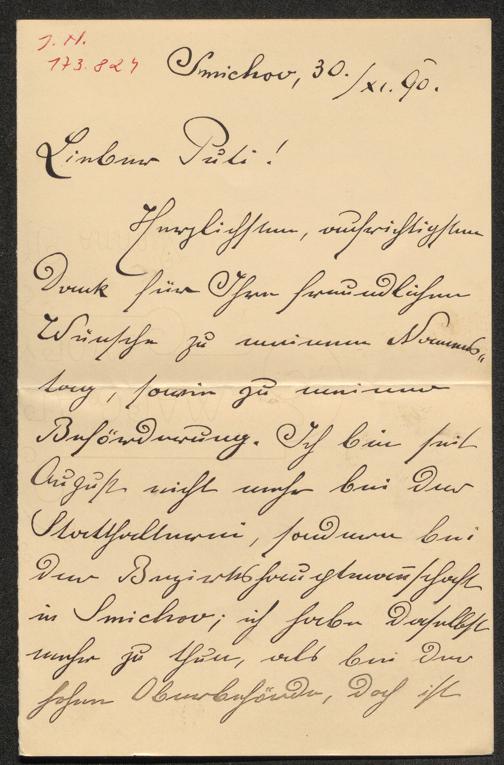 J. N.
173.824
Smichov, 30./XI. 90.
Lieber Puti!
Herzlichsten, aufrichtigsten
Dank für Ihre freundlichen
Wünsche zu meinem Namens-
tag, sowie zu meiner
Beförderung. Ich bin seit
August nicht mehr bei der
Statthalterei, sondern bei
der Bezirkshauptmannschaft
in Smichov; ich habe daselbst
mehr zu thun, als bei der
hohen Oberbehörde, doch ist